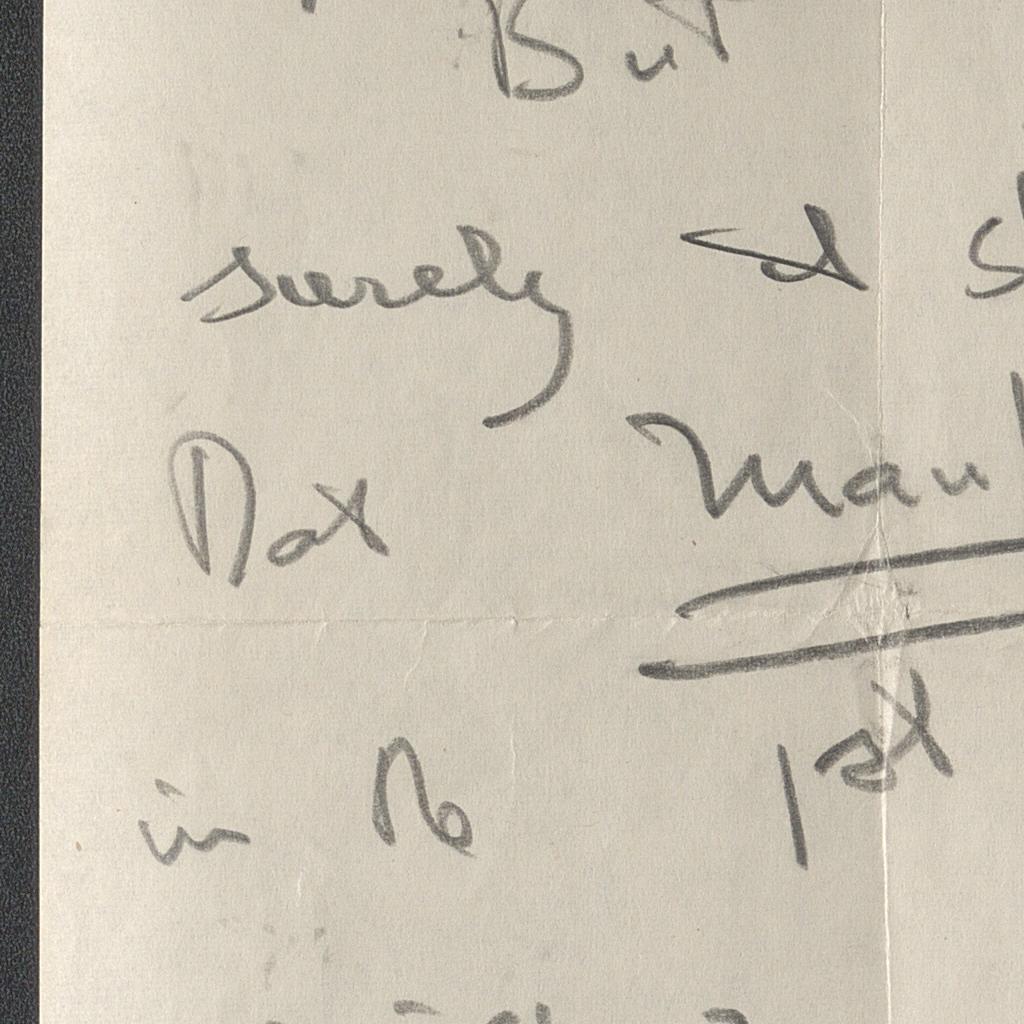 But
surely I
that man
in the 1st